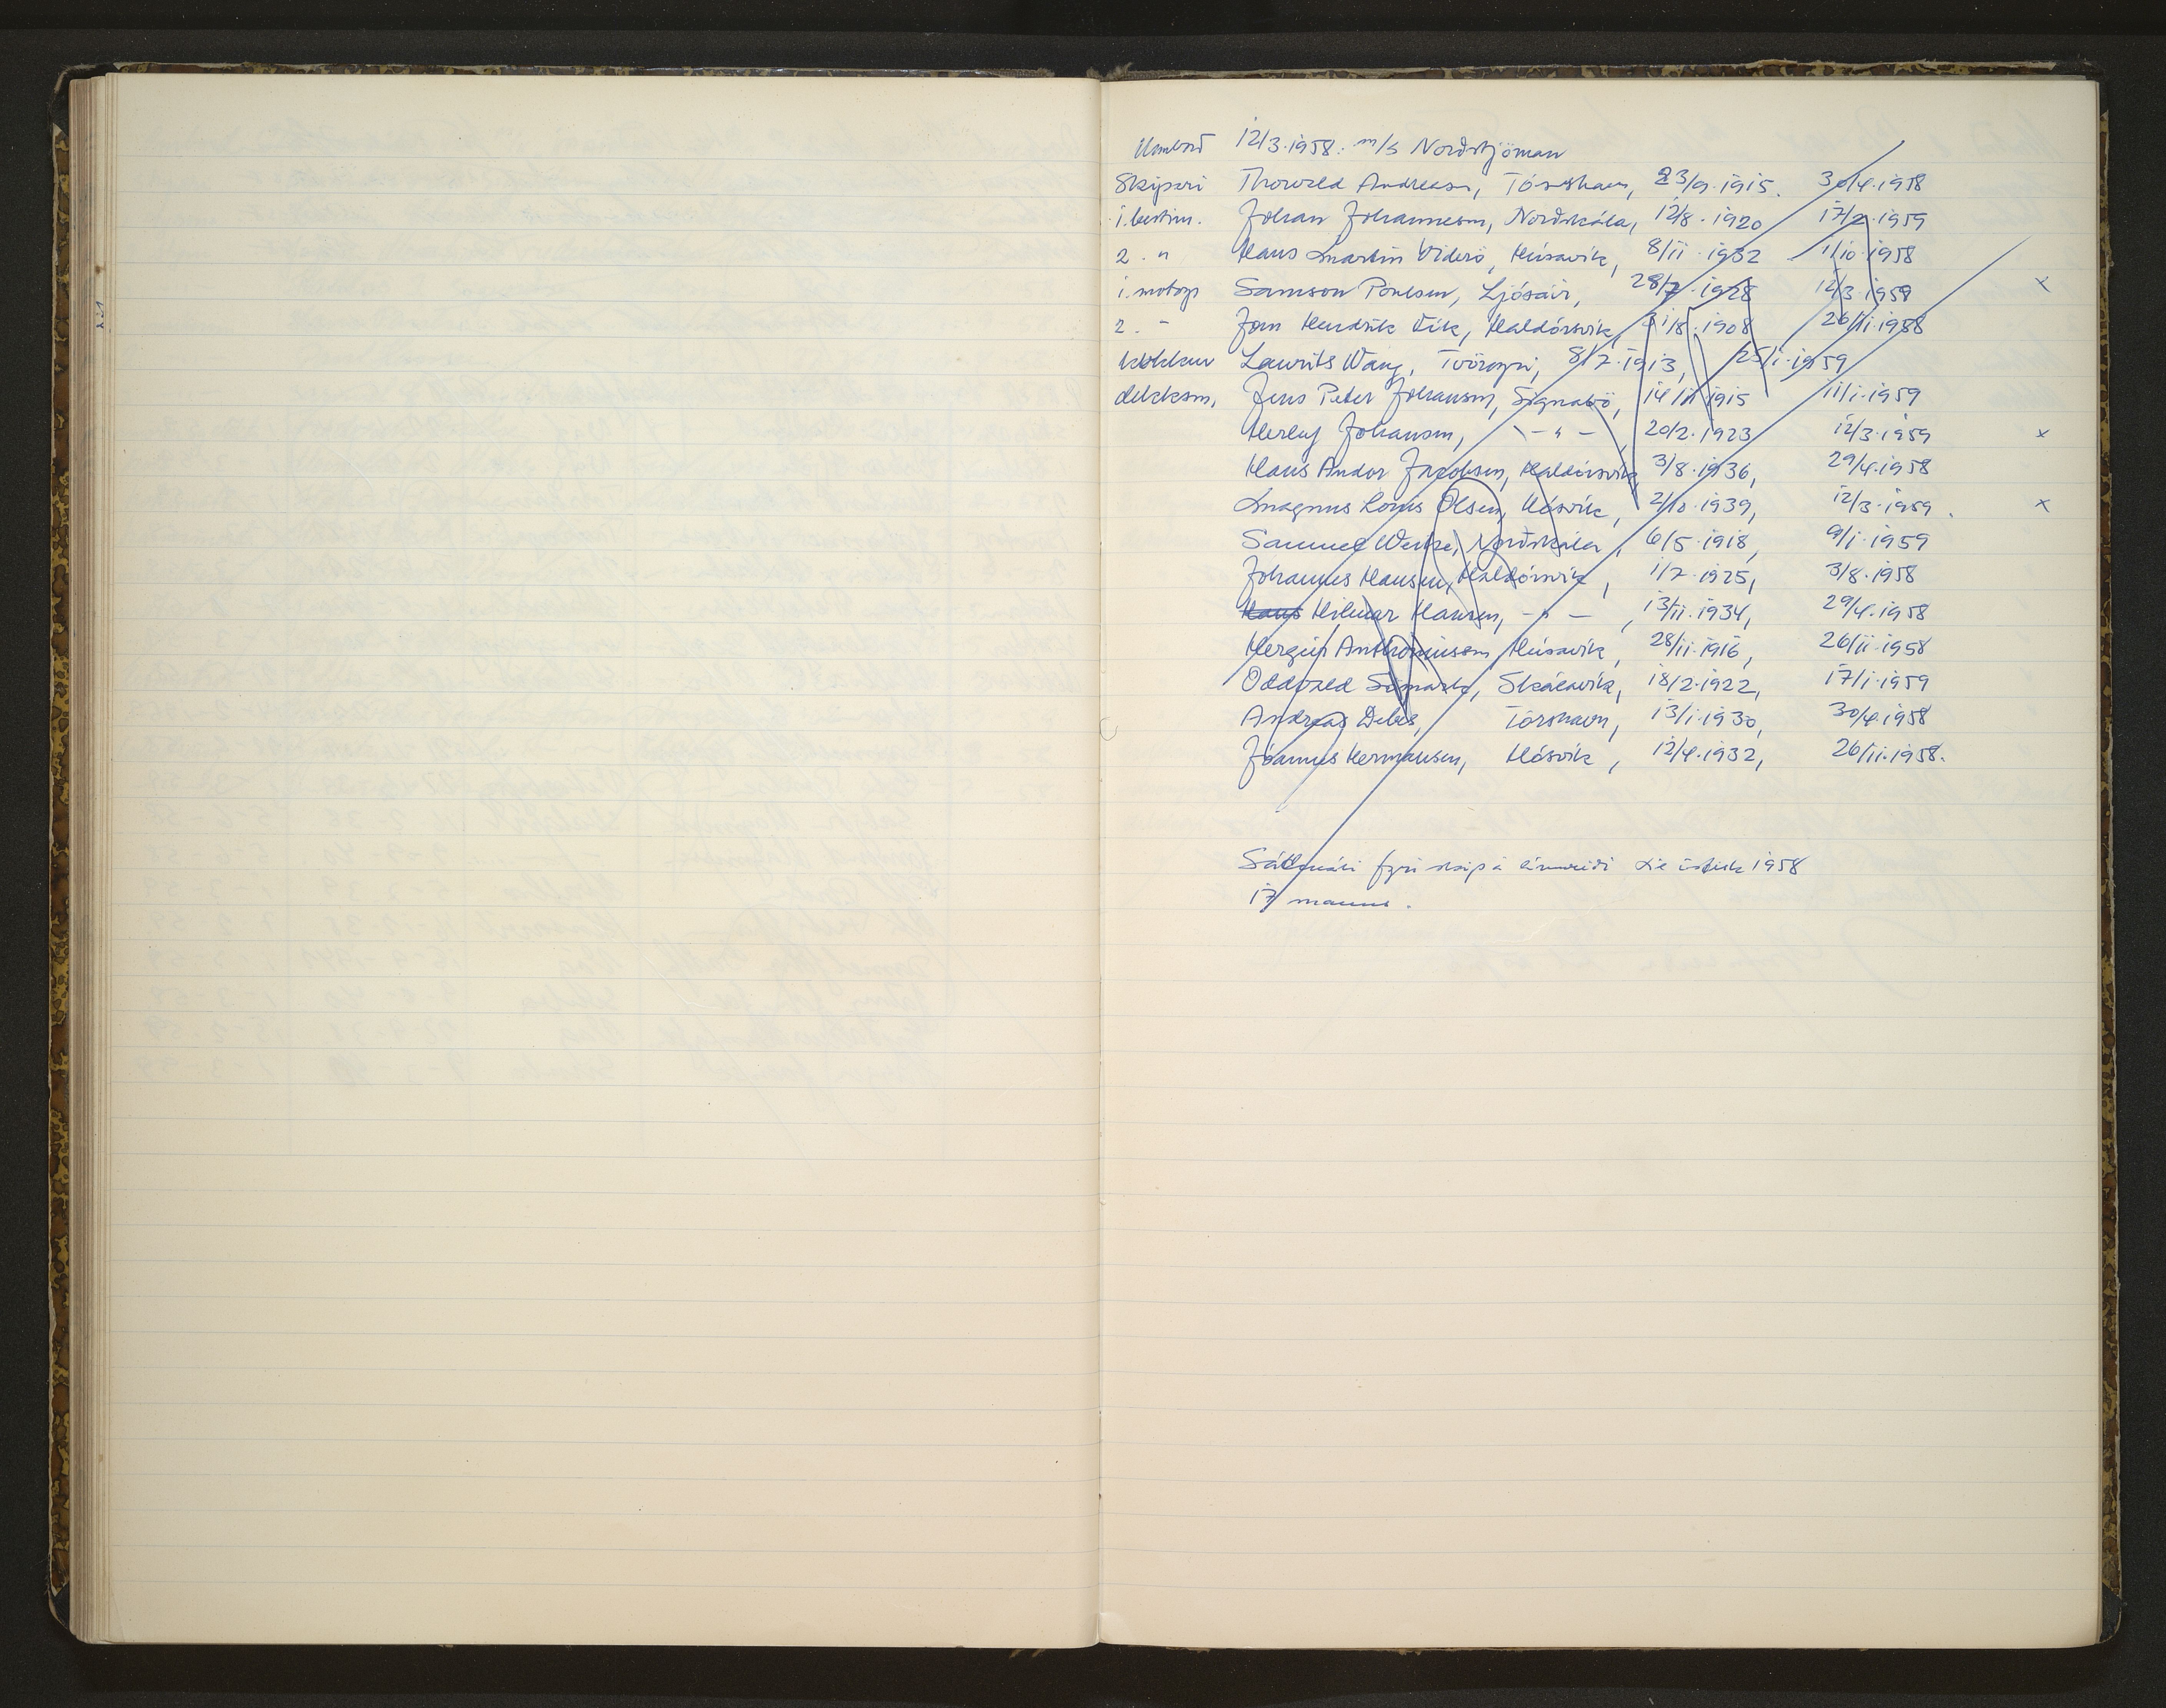 Umborð 12/3.1958: m/s Norðstjörnan
Skipari Thorvald Andreasen, Tórshavn, 23/9.1915. 30/4.1958
1. bestim. Johan Johannesen, Norðskála, 12/8.1920 17/2.1959
2. " Hans Martin Viderö, Húsavík, 8/11.1932 1/10.1958
1. motorp Samson Poulsen, Ljósáir, 28/7.1928 12/3.1959 x
2. - Jorn Hendrik Vik, Haldórsvik, 31/8.1908 26/11.1958
kokkur Laurits Wang, Tvöroyri, 8/7.1913, 25/1.1959
dekksm, Jens Peter Johansen, Signabö, 14/11 1915 11/1.1959
Herluf Johansen, - " - 20/2.1923 12/3.1959 x
Hans Andor Jacobsen, Haldórsvik, 3/8.1936, 29/4.1958
Magnus Louis Olsen, Hósvík, 2/10.1939, 12/3.1959. x
Samuel Weihe, Norðskála, 6/5.1918, 9/1.1959
Johannus Hansen, Haldórsvik, 1/7.1925, 3/8.1958
Hans Hilmar Hansen, - " - , 13/11.1934, 29/4.1958
Hergeir Anthoniusen Húsavík, 28/11.1916, 26/11.1958
Oddvald Skálavík, 18/2.1922, 17/1.1959
Andreas Debes, Tórshavn, 13/1.1930, 30/4.1958
Jóannus Hermansen, Hósvík, 12/4.1932, 26/11.1958.
Sáttmáli fyri skip á línuveiði 1958
17 manns.